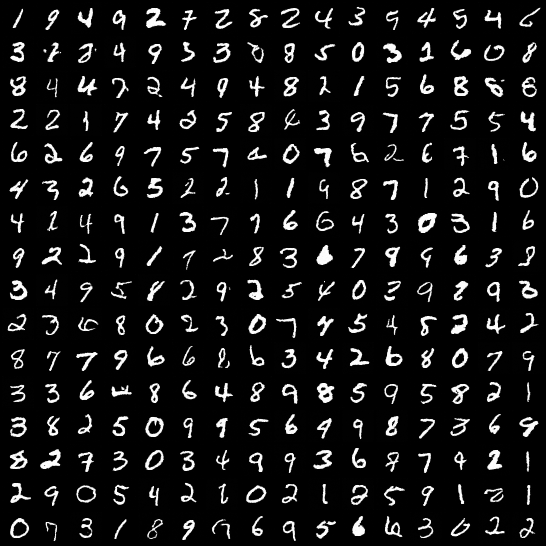 1 9 4 9 2 7 2 8 2 4 3 9 4 5 4 6
3 2 4 9 5 3 8 5 0 3 1 6 0 8
8 4 4 2 2 4 9 4 8 2 1 5 6 8 8 8
2 2 1 7 4 2 5 8 4 3 9 7 7 5 5 4
6 2 6 9 7 5 7 4 0 7 6 2 6 7 1 6
4 3 2 6 5 2 2 1 1 9 8 7 1 2 9 0
4 2 4 9 1 3 7 7 6 6 4 3 0 3 1 6
9 2 2 9 1 7 2 8 3 6 7 9 9 6 3 8
3 4 9 5 8 2 9 2 5 4 0 2 9 2 9 3
2 3 6 8 0 2 3 0 7 4 5 4 8 2 4 2
8 7 7 9 6 6 8 6 3 4 2 6 8 0 7 9
3 3 6 8 6 4 8 9 8 5 9 5 8 2 1
3 8 2 5 0 9 9 5 6 9 9 8 7 3 6 9
8 2 7 3 0 3 4 9 9 3 6 8 7 4 2 1
2 9 0 5 4 2 1 0 2 1 2 5 9 1 1
0 7 3 1 8 9 6 9 5 6 6 3 0 2 2